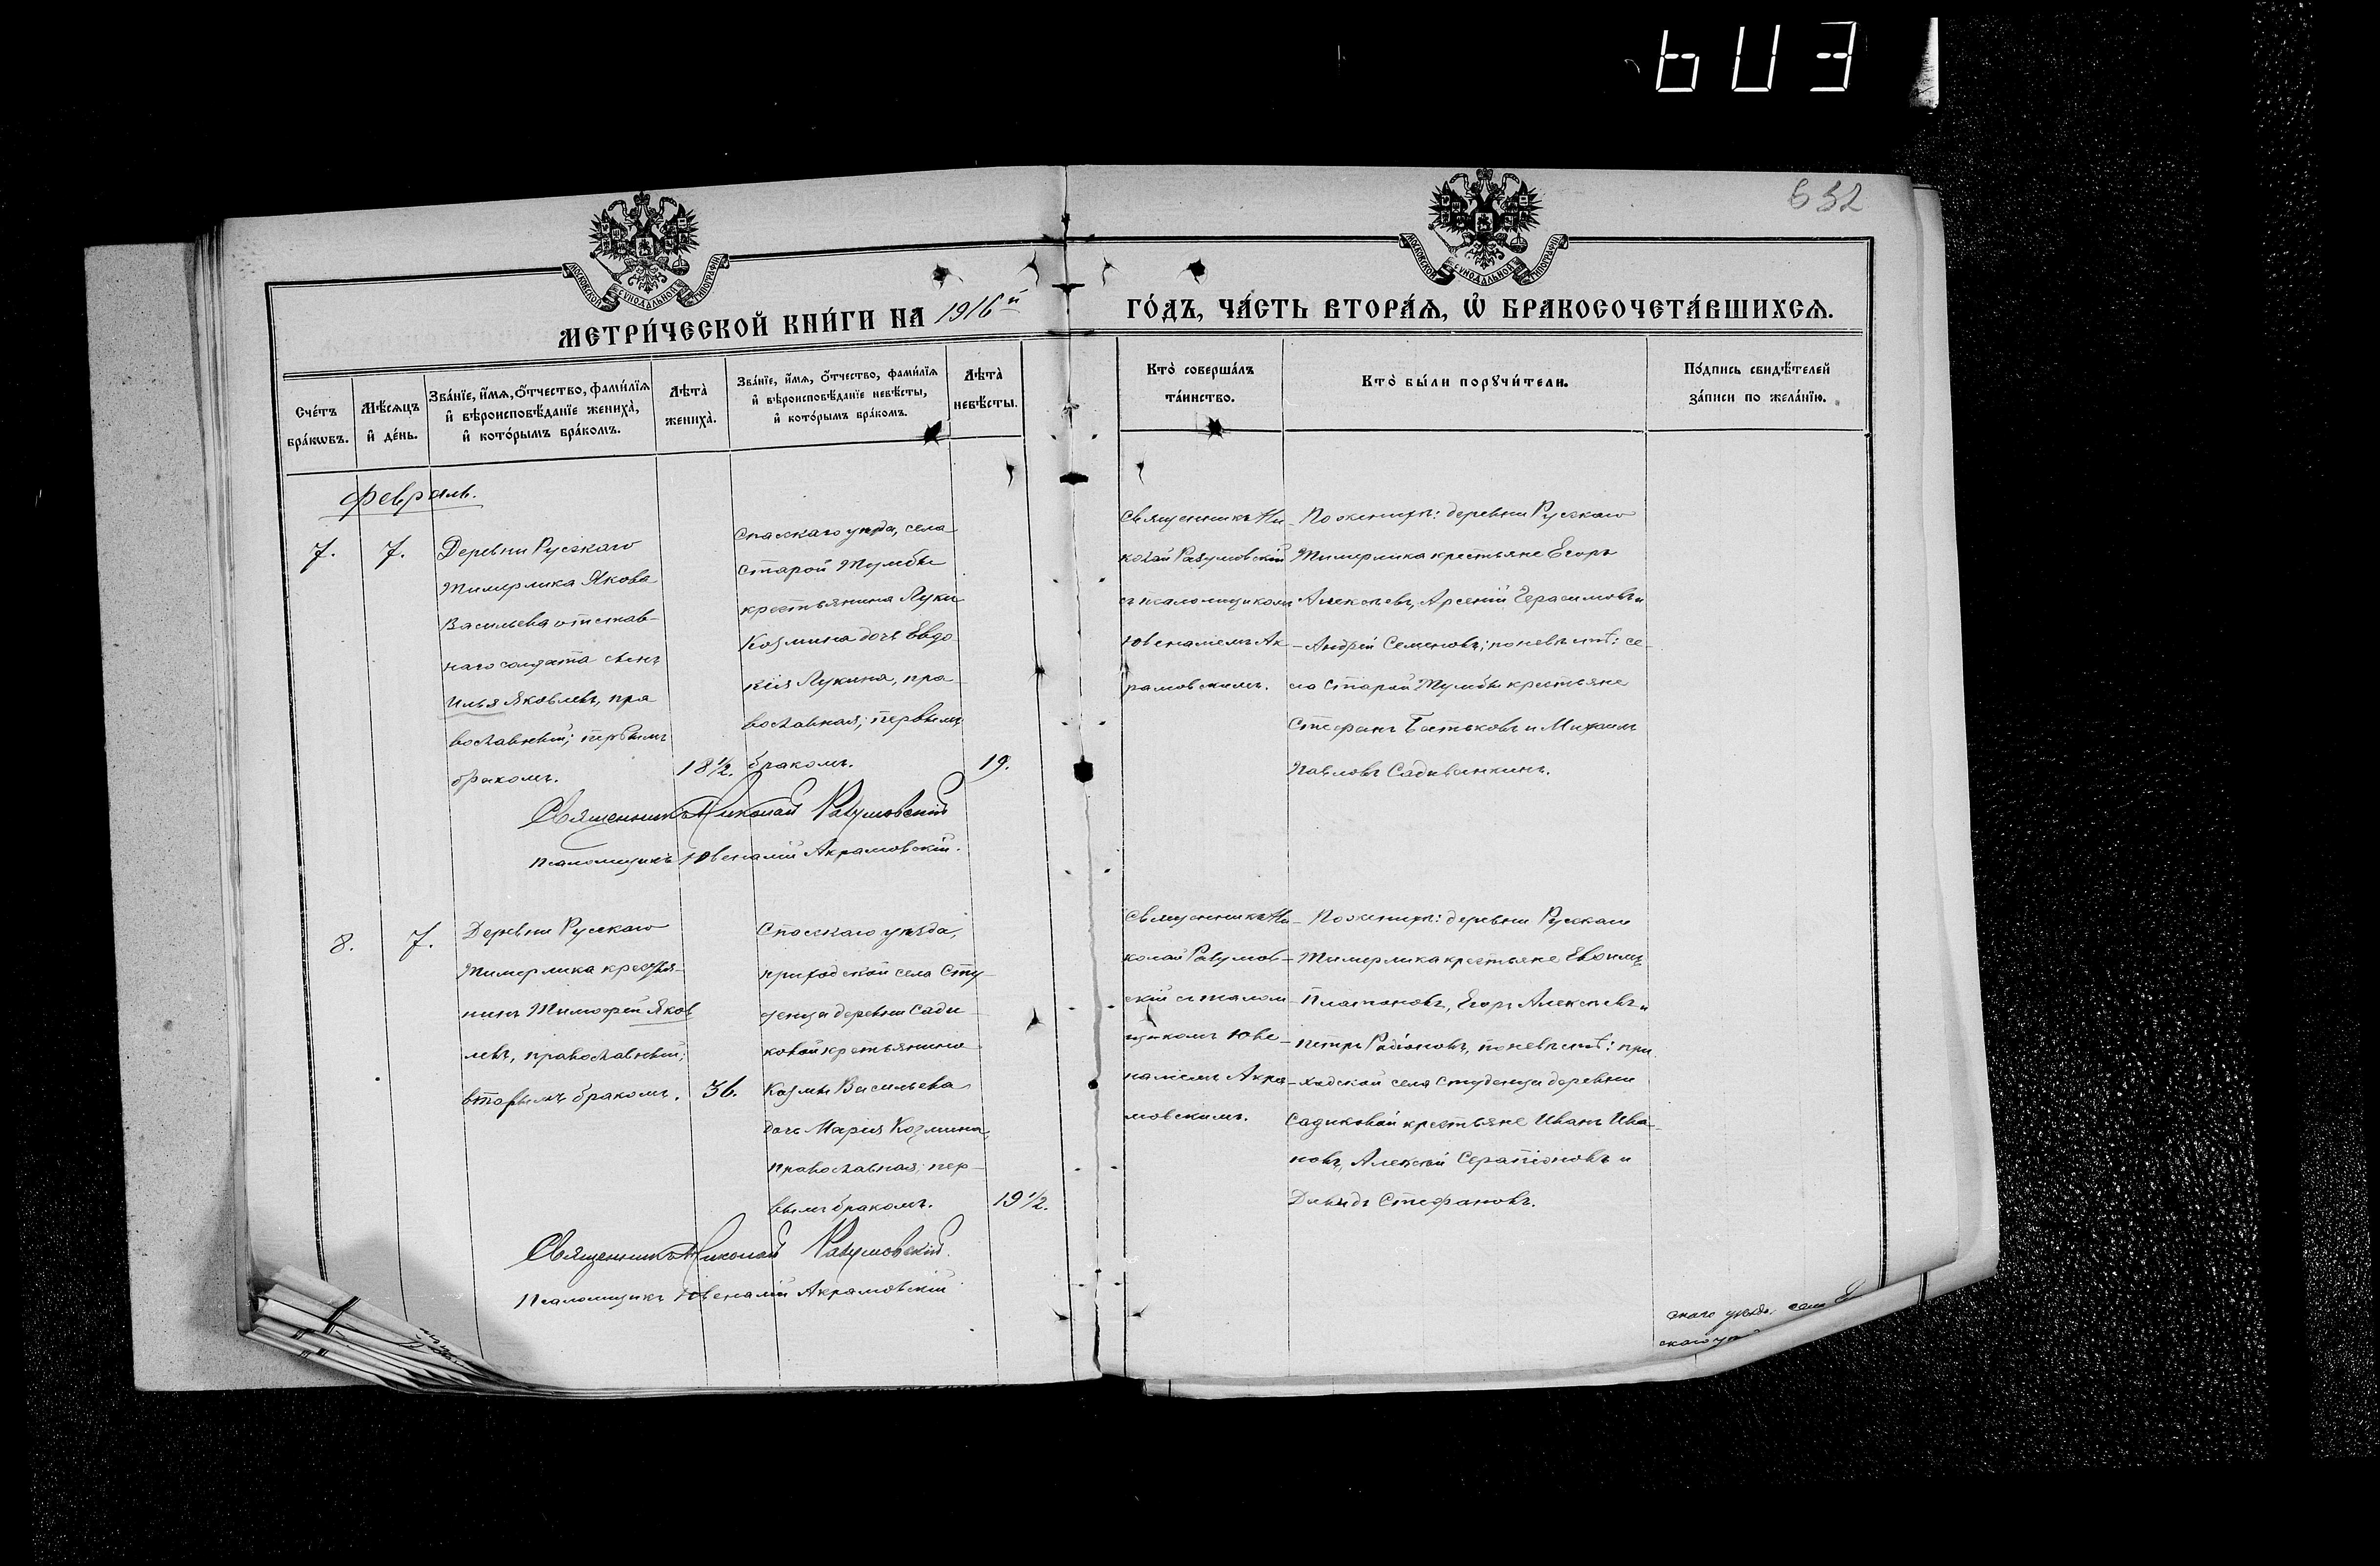 632
МОСКОВСКОЙ СѴНОДАЛЬНОЙ ТИПОГРАФІИ
МОСКОВСКОЙ СѴНОДАЛЬНОЙ ТИПОГРАФІИ
МЕТРИ́ЧЕСКОЙ КНИ́ГИ НА 1916й
ГО́ДЪ, ЧА́СТЬ ВТОРА́Ѧ, Ѡ БРАКОСОЧЕТА́ВШИХСѦ.
Сче́тъ бра́кѡвъ.
Мѣ́сѧцъ и де́нь.
Зва́нїе, и́мѧ, ѻ́тчество, фами́лїѧ
и вѣроисповѣ́данїе жениха̀,
и кото́рымъ бра́комъ.
Лѣта̀ жениха̀.
Зва́нїе, и́мѧ, ѻ́тчество, фами́лїѧ
и вѣроисповѣ́данїе невѣ́сты,
и кото́рымъ бра́комъ.
Лѣта̀ невѣ́сты.
Кто̀ соверша́лъ
та́инство.
Кто̀ бы́ли порꙋчи́тели.
По́дпись свидѣ́телей
за́писи по жела́нїю.
Февраль.
7.
7.
Деревни Русскаго
Тимерлика Якова
Васильева отстав-
наго солдата сынъ
Илья Яковлевъ, пра
вославный; первымъ
бракомъ.
18½.
Спасскаго уѣзда, села
Старой Тумбы
крестьянина Луки
Козмина дочь Евдо
кія Лукина, пра
вославная; первымъ
бракомъ.
19.
Священникъ Ни-
колай Разумовскій
съ псаломщикомъ
Ювеналіемъ Ак-
рамовскимъ.
По женихѣ: деревни Русскаго
Тимерлика крестьяне Егоръ
Алексѣевъ, Арсеній Герасимовъ и
Андрей Семеновъ; по невѣстѣ: се-
ла Старой Тумбы крестьяне
Стефанъ Батьковъ и Михаилъ
Павловъ Садыванкинъ.
Священникъ Николай Разумовскій
Псаломщикъ Ювеналій Акрамовскій.
8.
7.
Деревни Русскаго
Тимерлика крестья-
нинъ Тимофей Яков
левъ, православный;
вторымъ бракомъ.
36.
Спасскаго уѣзда,
приходской села Сту-
денца деревни Сади
ковой крестьянина
Козмы Васильева
дочь Марія Козмина,
православная; пер-
вымъ бракомъ.
19½.
Священникъ Ни-
колай Разумов-
скій съ псалом
щикомъ Юве-
наліемъ Акра-
мовскимъ.
По женихѣ: деревни Русскаго
Тимерлика крестьяне Евфимъ
Платоновъ, Егоръ Алексѣевъ и
Петръ Радіоновъ, по невѣстѣ: при
ходской села Студенца деревни
Садиковой крестьяне Иванъ Ива-
новъ, Алексѣй Серапіоновъ и
Давидъ Стефановъ.
Священникъ Николай Разумовскій.
Псаломщикъ Ювеналій Акрамовскій
скаго уѣзда, села